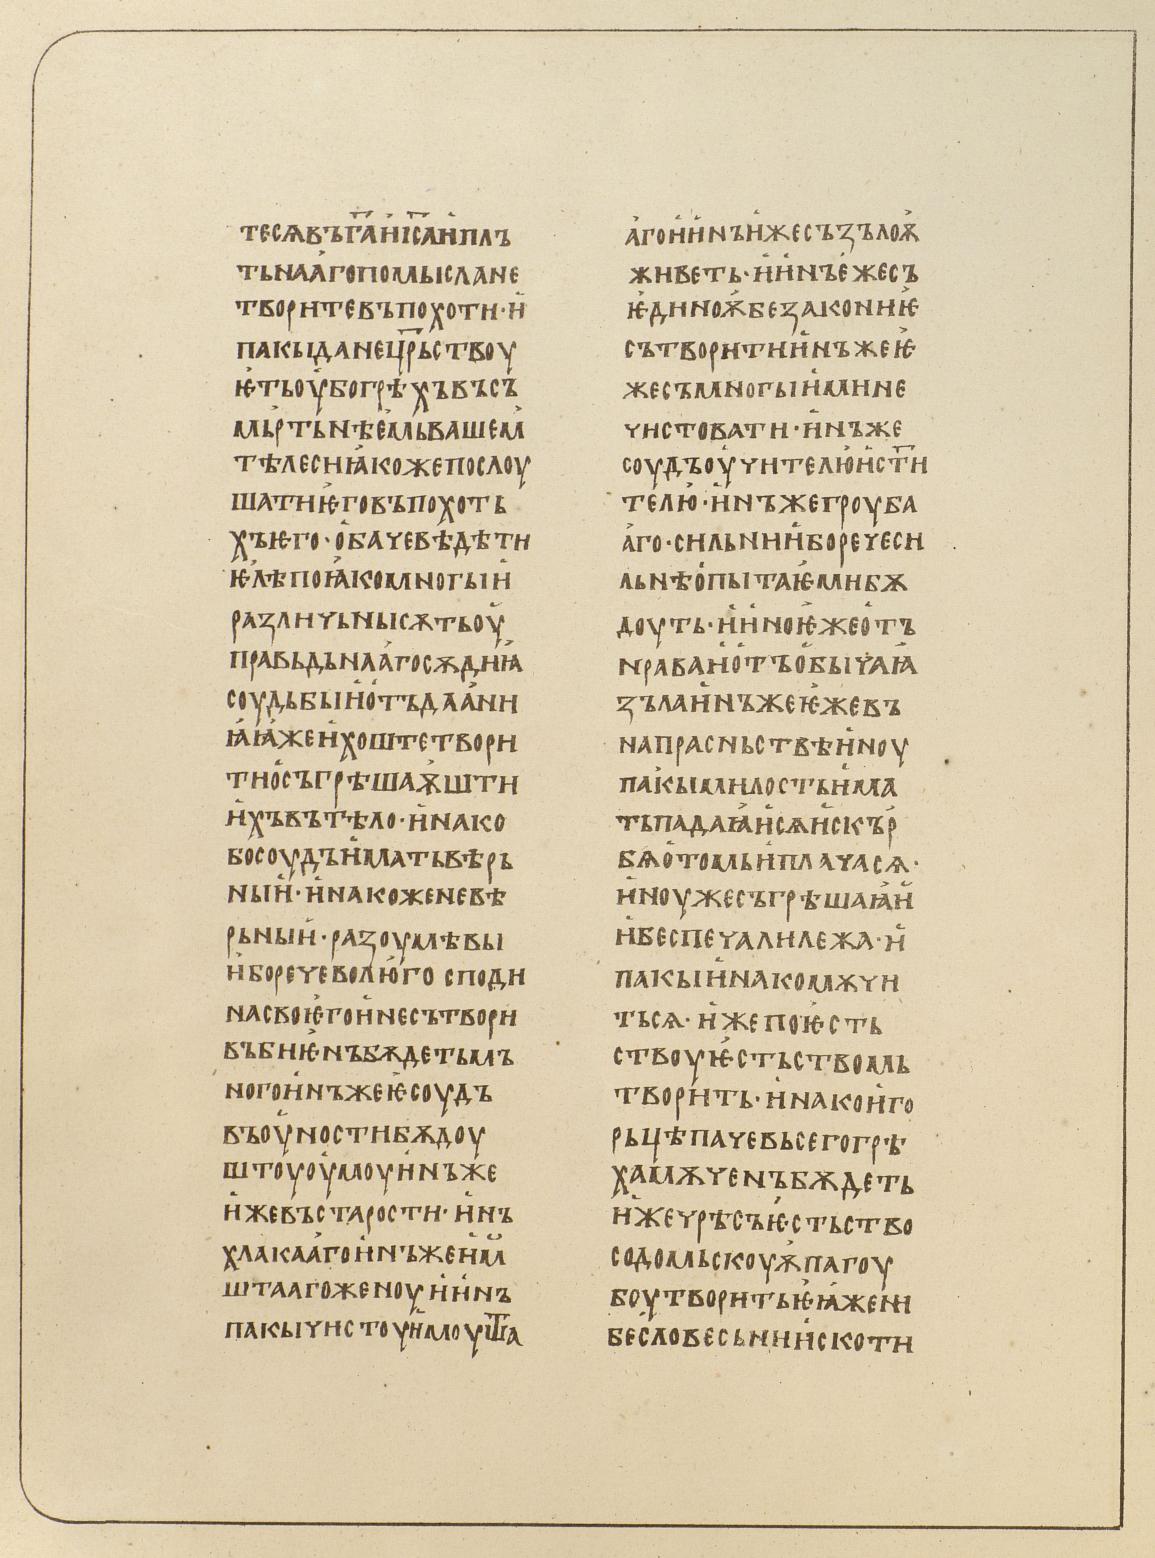 тесѧвъг҃аи҆іс҃аи҆плъ
тьнаа҆гопомыслане
творитевъпохоти·и҆
пакыданецр҃ьствоу
ѥ҆тьоу҆богрѣхъвъсъ
мьртьнѣе҆мьвашем
тѣлесиꙗ҆кожепослоу
шатиѥ҆говъпохоть
хъѥ҆го·о҆бачевѣдѣти
ѥ҆лѣпоꙗ҆комногыи҆
различьнысѫтьоу҆
правьдьнаа҆госѫдиꙗ҆
соудьбыи҆о҆тъдаа҆ни
ꙗ҆ꙗ҆жеи҆хоштетвори
тио҆съгрѣшаѭ҆шти
и҆хъвътѣло·и҆нако
босоудъи҆матьвѣрь
ныи҆·и҆накоженевѣ
рьныи҆·разоумѣвы
и҆боречеволю҆господи
насвоѥ҆гои҆несътвори
въбиѥ҆нъбѫдетьмъ
ногои҆нъжеѥ҆соудъ
въоу҆ностибѫдоу
штоуоу҆моуи҆нъже
и҆жевъстарости·и҆нъ
хлакаа҆гои҆нъжеи҆м
штаагоженоуи҆и҆нъ
пакычистоуи҆моуѿа
а҆гои҆и҆нъи҆жесъзълоѭ҆
живеть·и҆и҆нъе҆жесъ
ѥ҆диноѭ҆безакониѥ҆
сътворитии҆нъжеѥ҆
жесъмногыи҆мине
чистовати·и҆нъже
соудъоу҆чителю҆ист҃и
телю҆·и҆нъжегроуба
а҆го·сильнии҆боречеси
льнѣо҆пытаѥ҆мибѫ
доуть·и҆и҆ноѥ҆жео҆тъ
нраваи҆о҆тъо҆бычаꙗ҆
зълаи҆нъжеѥ҆жевъ
напрасньствѣи҆ноу
пакымилостьи҆ма
тьпадаꙗ҆и҆сѧи҆скър
бѧо҆томьи҆плачасѧ·
и҆ноужесъгрѣшаꙗ҆и҆
и҆беспечалилежа·и҆
пакыи҆накомѫчи
тьсѧ·и҆жепоѥ҆сть
ствоуѥ҆стьствомь
творить·и҆накои҆го
рьцѣпачевьсегогрѣ
хамѫченъбѫдеть
и҆жечрѣсъѥ҆стьство
содомьскоуѭ҆пагоу
боутворитьѥ҆ꙗ҆жени
бесловесьнии҆скоти